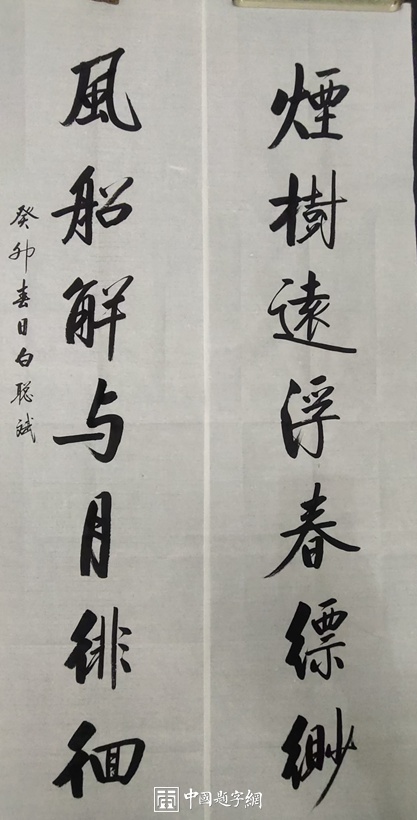 煙樹遠浮春缥緲
風船解与月徘徊
癸卯春日白聪斌
中國題字網